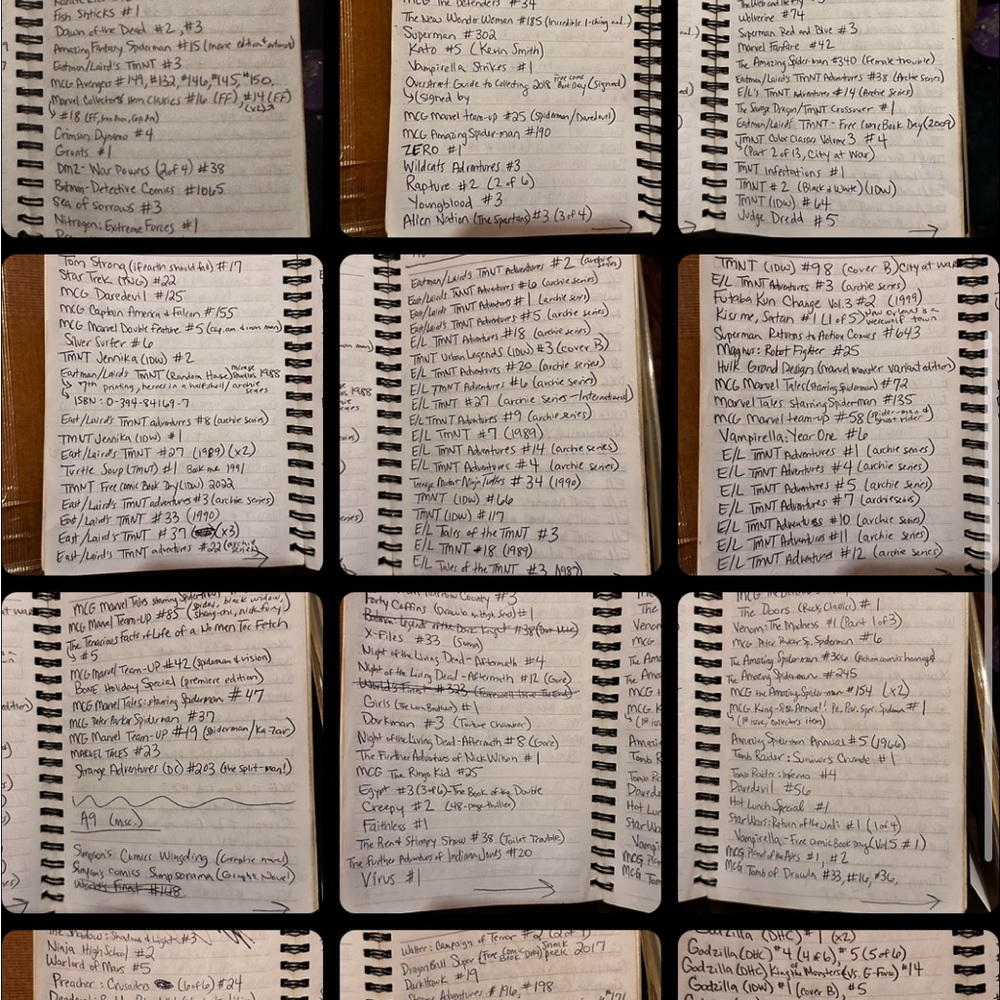 Fish Shticks #1
Dawn of the Dead #2, #3
Amazing Fantasy Spiderman #15
Eastman/Laird's TMNT #3
MCG Avengers #149, #132, #146, #145, #150,
Marvel Collector's Item Classics #16 (FF), #14 (FF)
(x2)
#18 (FF, Iron Man, Cap Am)
Crimson Dynamo #4
Grunts #1
DMZ - War Powers (2 of 4) #38
Batman - Detective Comics #1065
Sea of Sorrows #3
Nitrogen: Extreme Forces #1
MCG The Defenders #34
The New Wonder Woman #185 (Incredible I-ching
Superman #302
Kato #5 (Kevin Smith)
Vampirella Strikes #1
Overstreet Guide to Collecting 2018 Free Comic Book Day (Signed)
(signed by
MCG Marvel team-up #25 (Spiderman/Daredevil)
MCG Amazing Spider-man #190
ZERO #1
Wildcats Adventures #3
Rapture #2 (2 of 6)
Youngblood #3
Alien Nation (The Spartans) #3 (3 of 4)
Wolverine #74
Superman Red and Blue #3
Marvel Fanfare #42
The Amazing Spider-man #340 (Female trouble)
Eastman/Laird's TMNT Adventures #38 (Archie Series)
E/L's TMNT Adventures #14 (Archie Series)
The Savage Dragon/TMNT Crossover #1
Eastman/Laird's TMNT - Free Comic Book Day (2009)
TMNT Color Classics Volume 3 #4
(Part 2 of 13, City at War)
TMNT Infestations #1
TMNT #2 (Black & White) (IDW)
TMNT (IDW) #64
Judge Dredd #5
Tom Strong (if earth should fail) #17
Star Trek (TNG) #22
MCG Daredevil #125
MCG Captain America & Falcon #155
MCG Marvel Double Feature #5 (Cap. am & iron man)
Silver Surfer #6
TMNT Jennika (IDW) #2
Eastman/Laird's TMNT (Random House) Mirage Studios 1988
7th printing, heroes in a halfshell/archie series
ISBN: 0-394-84169-7
East/Laird's TMNT adventures #8 (archie series)
TMNT Jennika (IDW) #1
East/Laird's TMNT #27 (1989) (x2)
Turtle Soup (Tmnt) #1 Book one 1991
TMNT Free Comic Book Day (IDW) 2022
East/Laird's TMNT adventures #3 (archie series)
East/Laird's TMNT #33 (1990)
East/Laird's TMNT #37 (x3)
East/Laird's TMNT adventures #22 (archie series)
Eastman/Laird's TMNT Adventures #2 (archie series)
East/Laird's TMNT Adventures #6 (archie series)
East/Laird's TMNT Adventures #1 (archie series)
East/Laird's TMNT Adventures #5 (archie series)
E/L TMNT Adventures #18 (archie series)
TMNT Urban Legends (IDW) #3 (cover B)
E/L TMNT Adventures #20 (archie series)
E/L TMNT Adventures #6 (archie series)
E/L TMNT #27 (archie series - International)
E/L TMNT Adventures #9 (archie series)
E/L TMNT #7 (1989)
E/L TMNT Adventures #14 (archie series)
E/L TMNT Adventures #4 (archie series)
Teenage Mutant Ninja Turtles #34 (1990)
TMNT (IDW) #66
TMNT (IDW) #117
E/L Tales of the TMNT #3
E/L TMNT #18 (1989)
E/L Tales of the TMNT #3 (1987)
TMNT (IDW) #98 (cover B) City at war
E/L TMNT Adventures #3 (archie series)
Futaba Kun Change Vol.3 #2 (1999)
Kiss me, Satan #1 (1 of 5) New orleans is a werewolf town
Superman Returns to Action Comics #643
Magnus: Robot Fighter #25
Hulk Grand Design (marvel monster variant edition)
MCG Marvel Tales (Starring Spiderman) #72
Marvel Tales Starring Spiderman #135
MCG Marvel team-up #58 (spider-man & ghost rider)
Vampirella: Year One #6
E/L TMNT Adventures #1 (archie series)
E/L TMNT Adventures #4 (archie series)
E/L TMNT Adventures #5 (archie series)
E/L TMNT Adventures #7 (archie series)
E/L TMNT Adventures #10 (archie series)
E/L TMNT Adventures #11 (archie series)
E/L TMNT Adventures #12 (archie series)
MCG Marvel Tales starring Spiderman
MCG Marvel Team-Up #85 (spidey, black widow, shang-chi, nick fury)
The Tenacious Facts of Life of a Women Toc Fetch
#5
MCG Marvel Team-UP #42 (spiderman & vision)
BONE Holiday Special (premiere edition)
MCG Marvel Tales: starring Spiderman #47
MCG Peter Parker Spiderman #37
MCG Marvel Team-UP #19 (spiderman/Ka-Zar)
MARVEL TALES #23
Strange Adventures (DC) #203 (the split-man!)
A9 (misc.)
Simpson's Comics Wingding (Graphic Novel)
Simpson's Comics Simpsorama (Graphic Novel)
World's Finest #148
Harrow County #3
Forty Coffins (Drawn with your Soul) #1
Batman Legends of the Dark Knight #38 (Bat-Mite)
X-Files #33 (Soma)
Night of the Living Dead - Aftermath #4
Night of the Living Dead - Aftermath #12 (Gore)
World's Finest #323 (Farewell Like The End)
Girls (The Luna Brothers) #1
Dorkman #3 (Torture Chamber)
Night of the Living Dead - Aftermath #8 (Gore)
The Further Adventures of Nick Wilson #1
MCG The Ringo Kid #25
Egypt #3 (3 of 6) - The Book of the Double
Creepy #2 (48-page thriller)
Faithless #1
The Ren & Stimpy Show #38 (Toilet Trouble)
The Further Adventures of Indiana Jones #20
Virus #1
The Doors (Rock Classics) #1
Venom: The Madness #1 (Part 1 of 3)
MCG Peter Parker S. Spiderman #6
The Amazing Spiderman #306 (Action comics homage)
The Amazing Spiderman #245
MCG the Amazing Spider-man #154 (x2)
MCG King-Size Annual! Pe. Par. Spec. Spidman #1
(1st issue, collectors item)
Amazing Spiderman Annual #5 (1966)
Tomb Raider: Survivor's Crusade #1
Tomb Raider: Inferno #4
Daredevil #56
Hot Lunch Special #1
Star Wars: Return of the Jedi #1 (1 of 4)
Vampirella - Free Comic Book Day (Vol.5 #1)
MCG Planet of the Apes #1, #2
MCG Tomb of Dracula #33, #16, #36,
The Shadow: Shadow & Light #3
Ninja High School #2
Warlord of Mars #5
Preacher: Crusaders (6 of 6) #24
Walter: Campaign of Terror #2 (2 of 4)
Dragon Ball Super (Free Comic Book Day) Sneak Peek 2017
Darkhawk #19
Strange Adventures #196, #198
Godzilla (DHC) #1 (x2)
Godzilla (DHC) #4 (4 of 6), #5 (5 of 6)
Godzilla (DHC) King of the Monsters (VS. G-Force) #14
Godzilla (IDW) #1 (cover B), #5